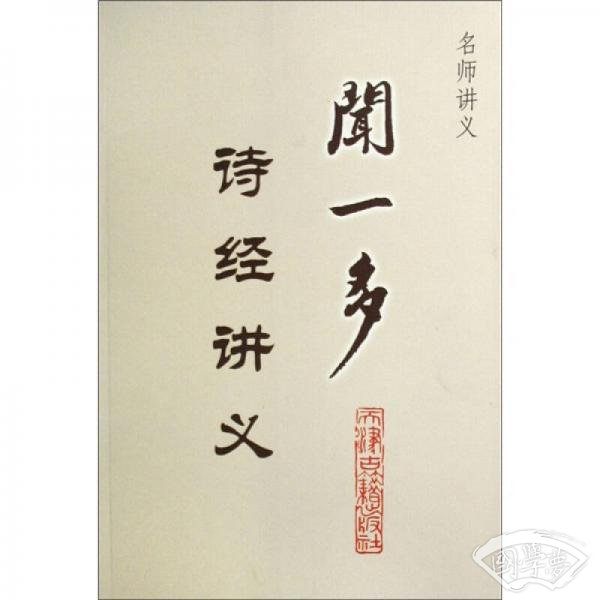 名师讲义
聞一多
诗经讲义
天津古籍出版社
國學夢